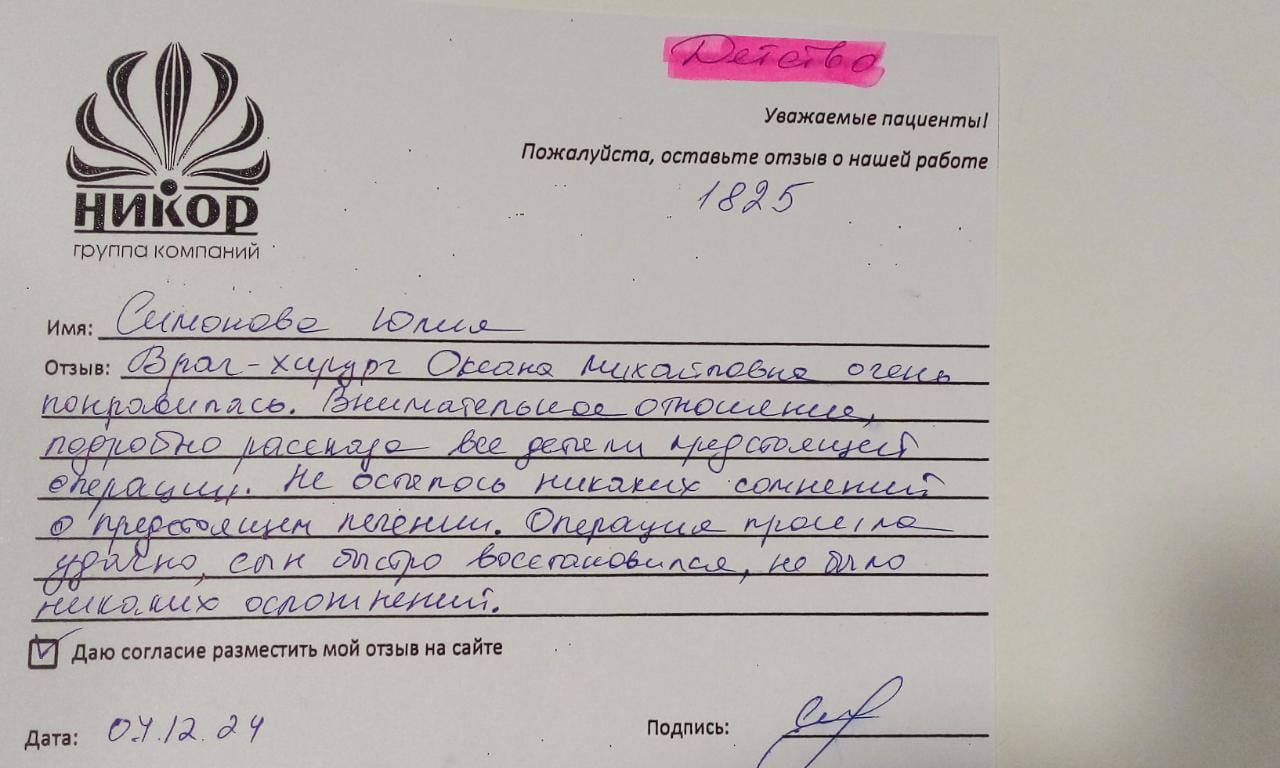 Детство
НИКОР
группа компаний
Уважаемые пациенты!
Пожалуйста, оставьте отзыв о нашей работе
1825
Имя: Симонова Юлия
Отзыв: Врач-хирург Оксана Михайловна очень
понравилась. Внимательное отношение,
подробно рассказа все детали предстоящей
операции. Не осталось никаких сомнений
о предстоящем лечении. Операция прошла
удачно, сын быстро восстановился, не было
никаких осложнений.
Даю согласие разместить мой отзыв на сайте
Дата: 07.12.24
Подпись: